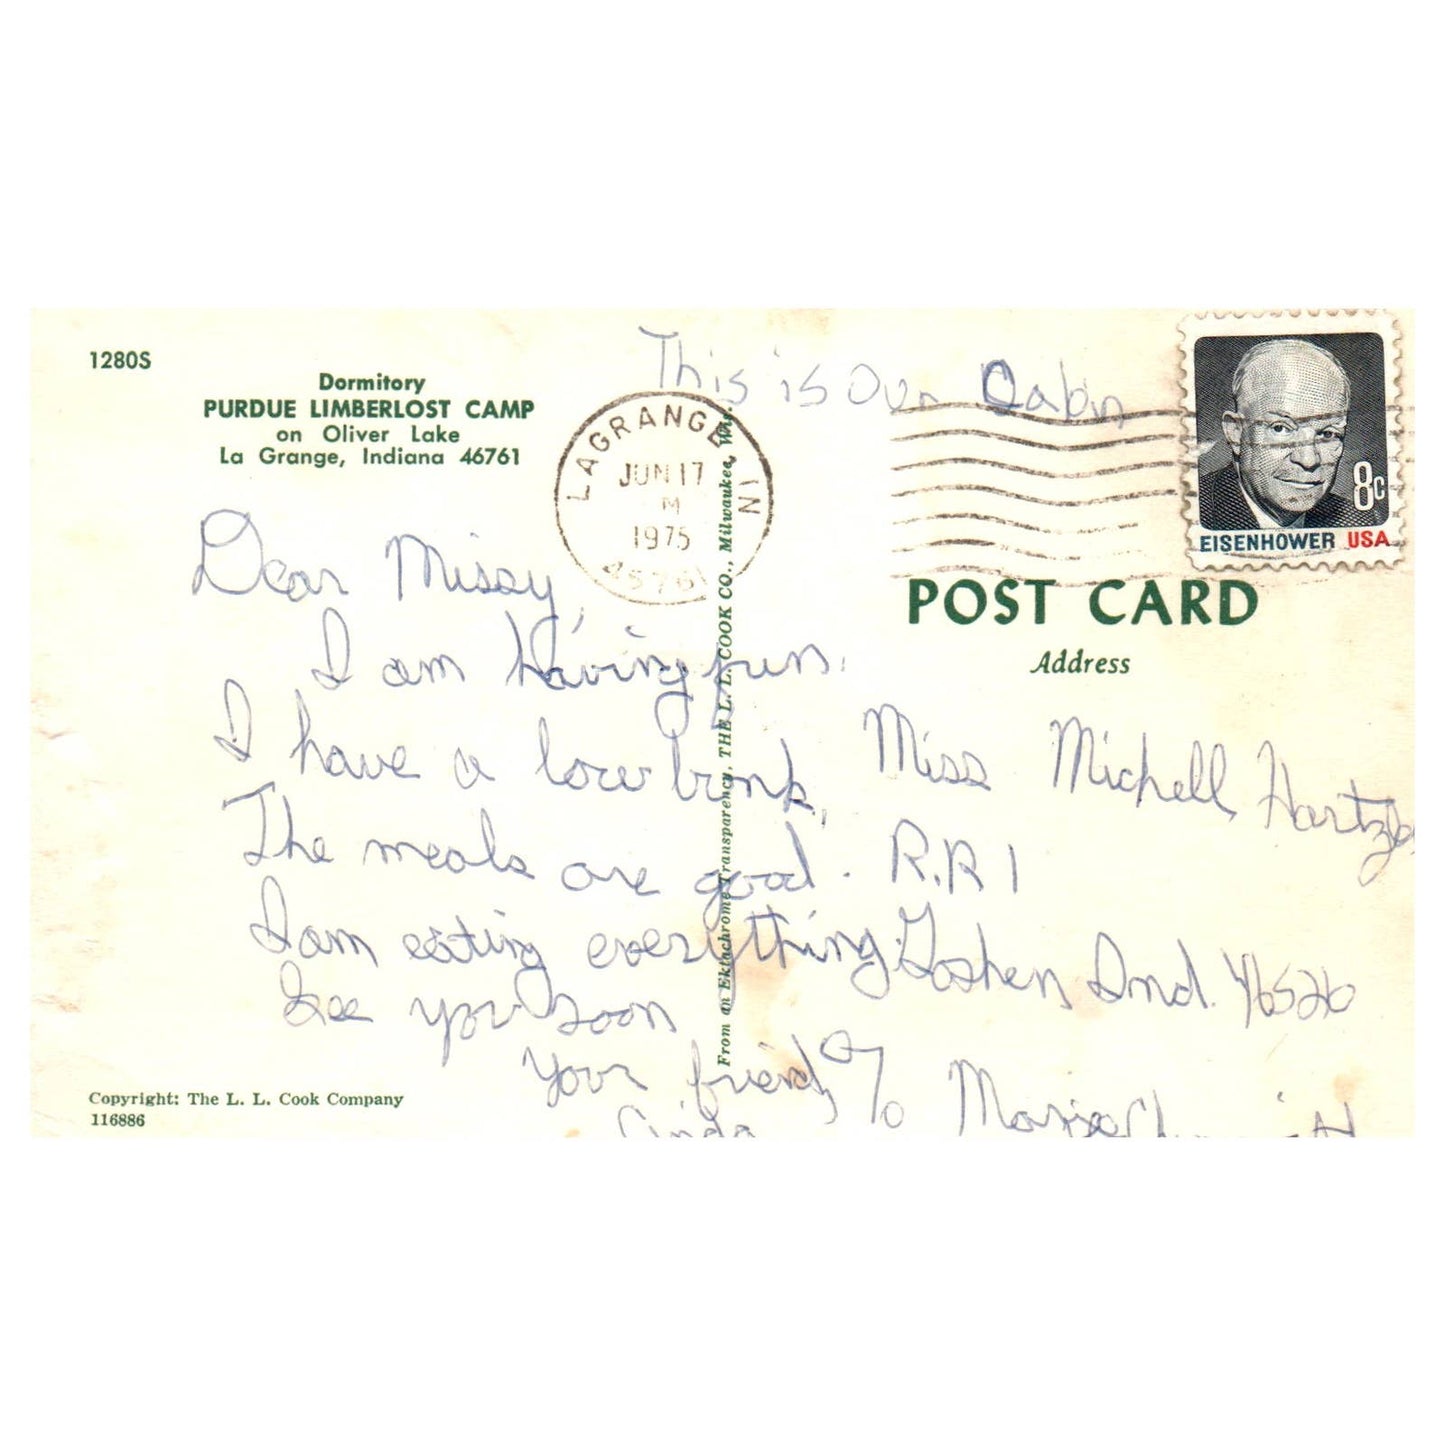 1280S
Dormitory
PURDUE LIMBERLOST CAMP
on Oliver Lake
La Grange, Indiana 46761
This is Our Cabin
LAGRANGE, IN
JUN 17
M
1975
8c
EISENHOWER USA
POST CARD
Address
Dear Missy,
I am having fun.
I have a low bunk,
The meals are good.
I am eating everything
See you soon
Your friend,
Cinda
Miss Michell
R.R 1
Goshen Ind. 46526
c/o
From an Ektachrome Transparency, THE L. L. COOK CO., Milwaukee, Wis.
Copyright: The L. L. Cook Company
116886